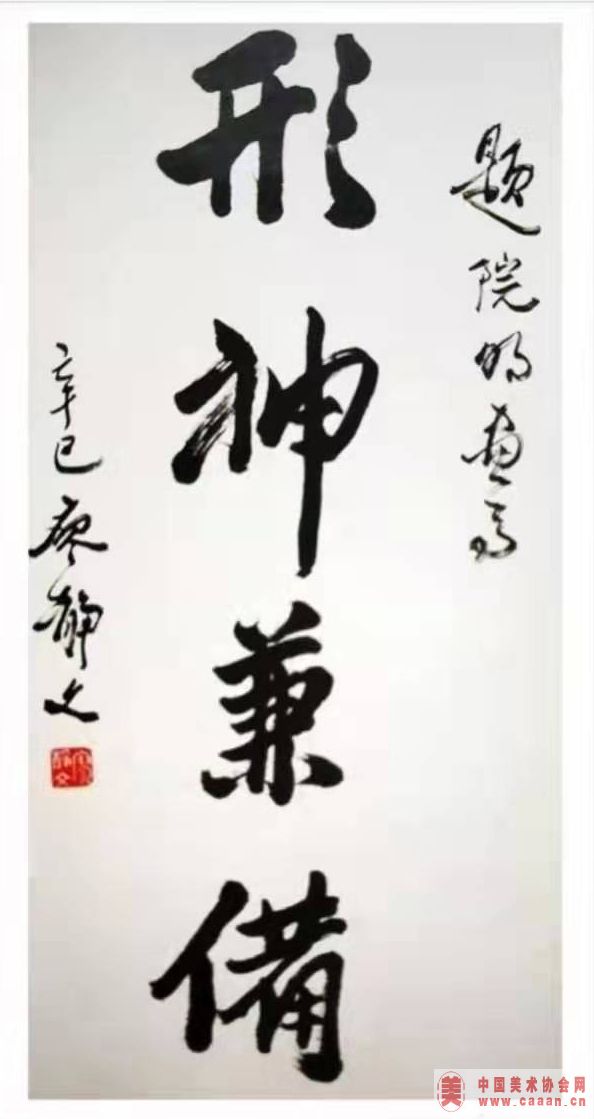 題院明畫馬
形神兼備
辛巳 廖静文
廖静文
中国美术协会网
www.caaan.cn